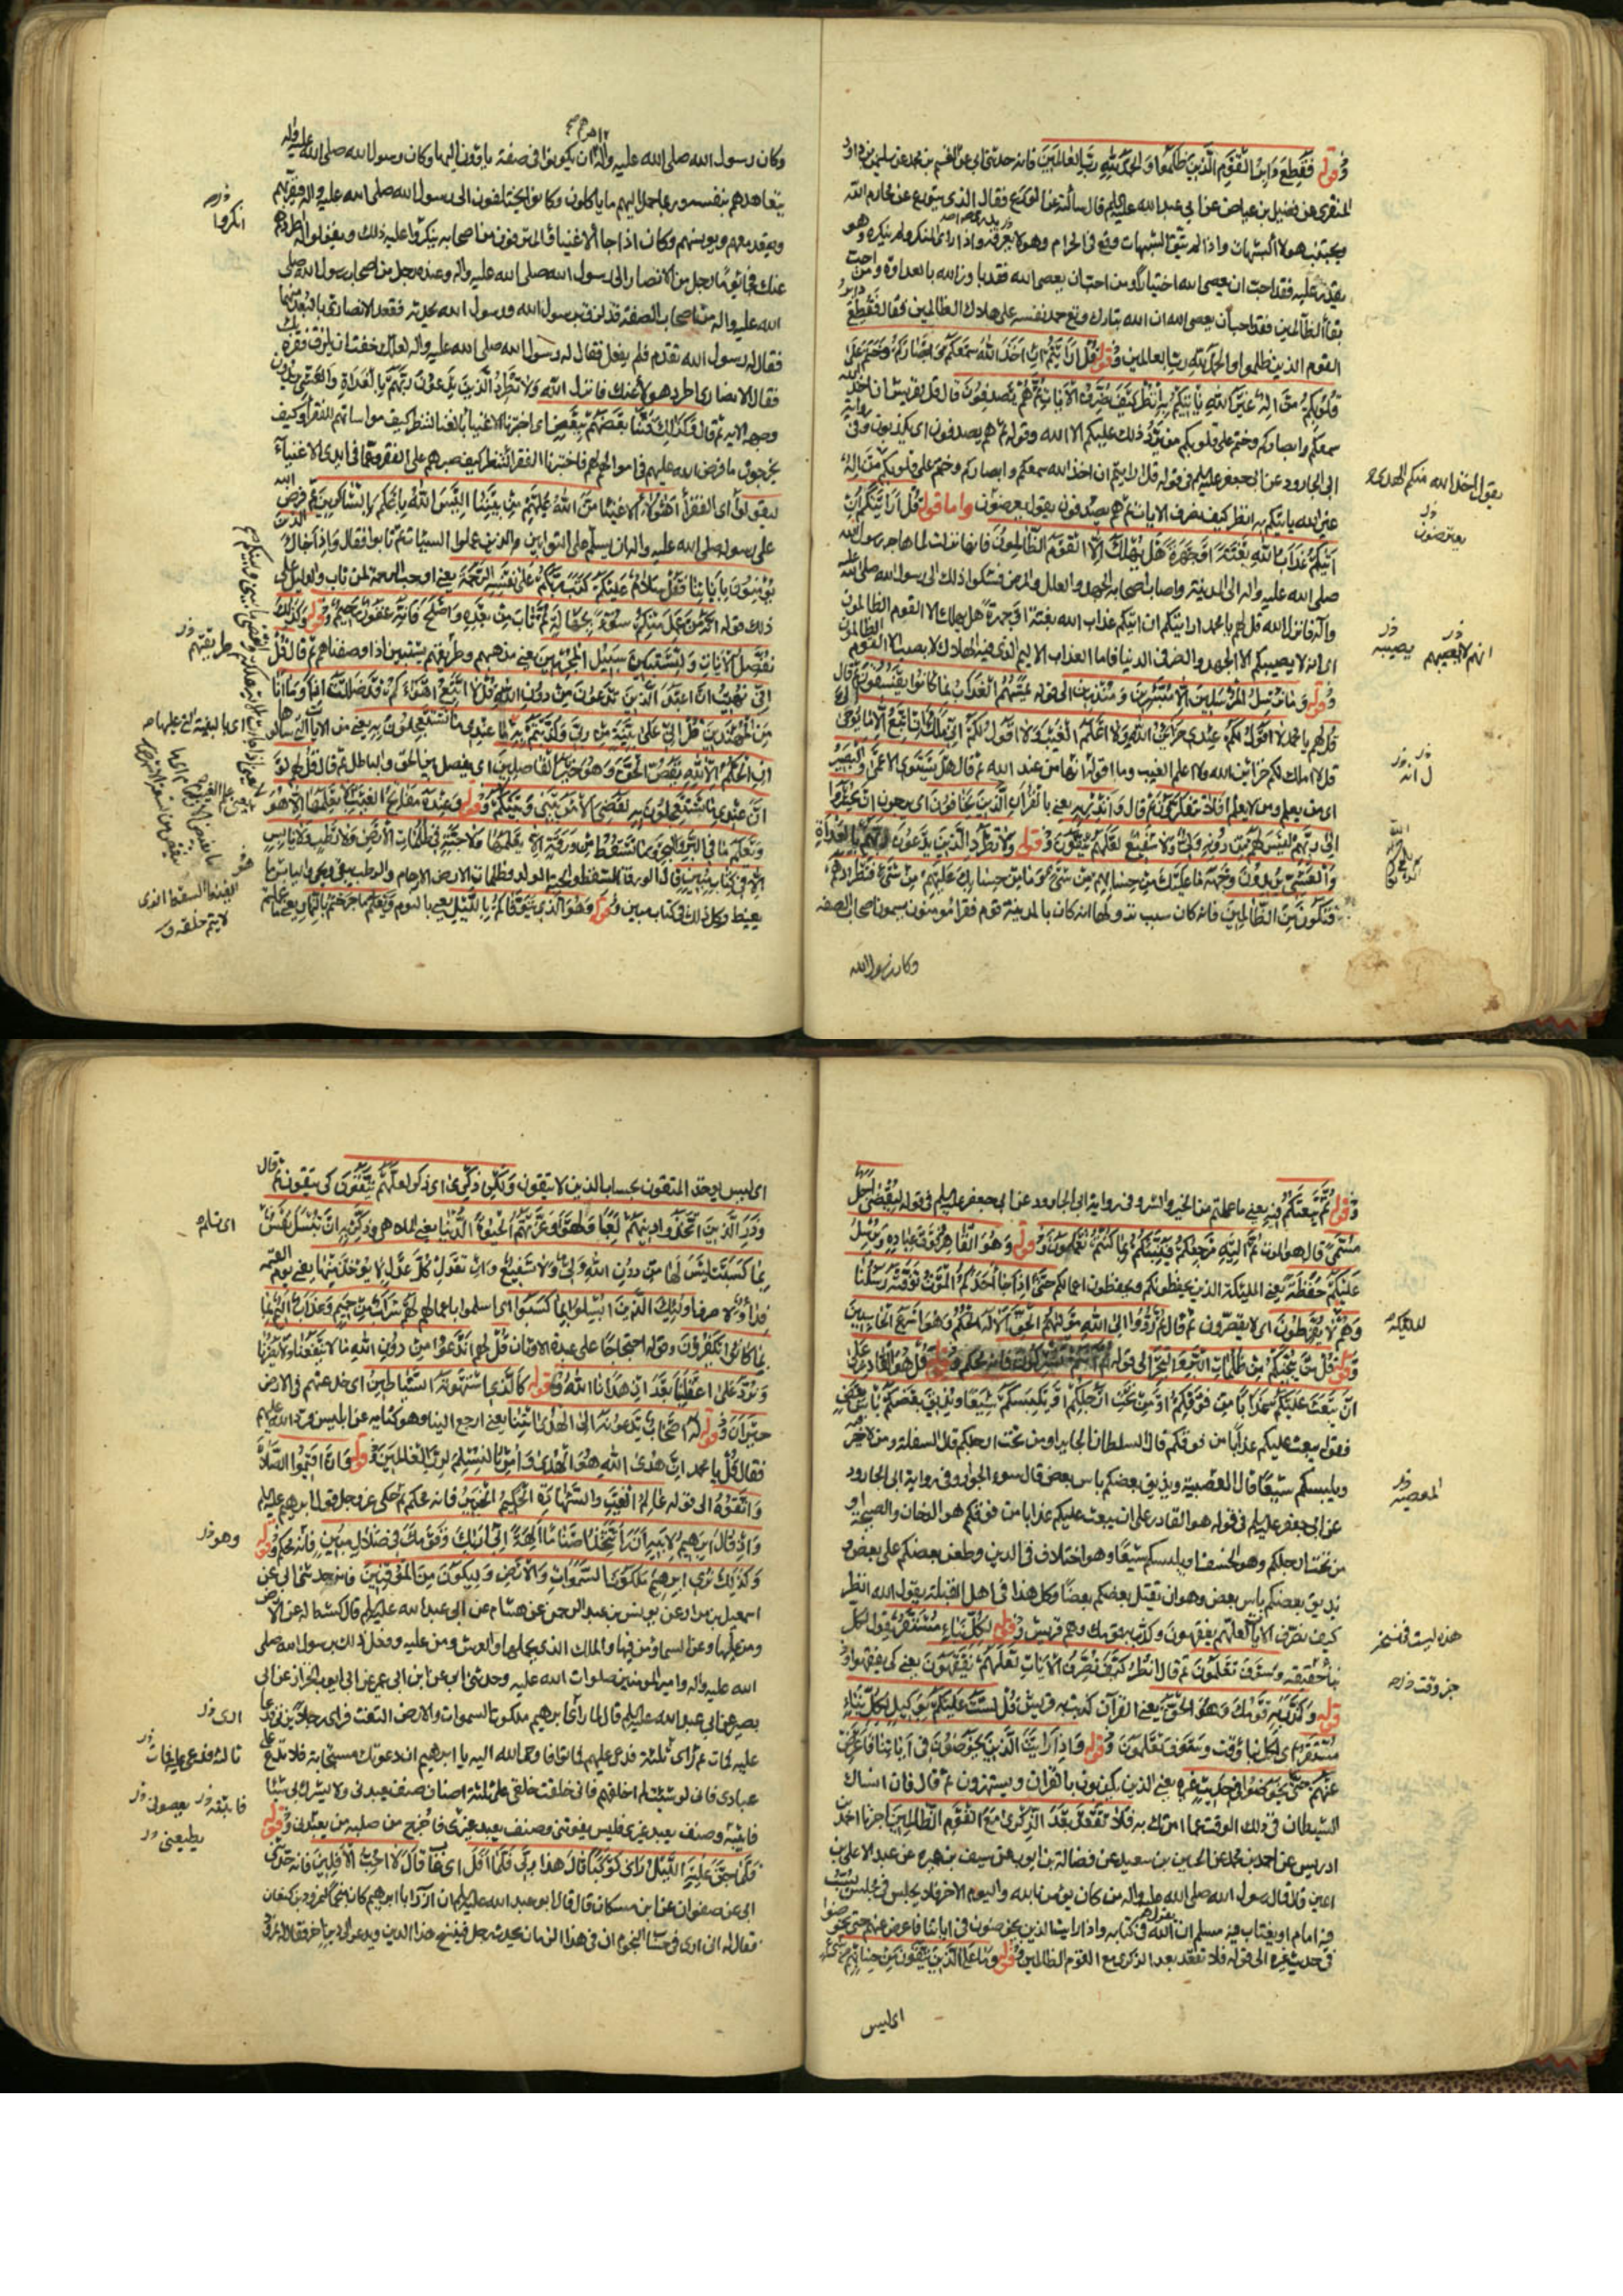 وقوله فَقُطِعَ دَابِرُ الْقَوْمِ الَّذِينَ ظَلَمُوا وَالْحَمْدُ لِلَّهِ رَبِّ الْعَالَمِينَ فانه حدثنى ابى عن القسم بن محمد عن سليمن بن داود
المنقرى عن فضيل بن عياض عن ابي عبد الله عليه السلم قال سألته عن الورع فقال الذى يتورع عن محارم الله
ويجتنب هولاء الشبهات واذا لم يتق الشبهات وقع فى الحرام وهو لا يعرفه واذا رأى المنكر ولم ينكره وهو
يقدر عليه فقد احب ان يعصى الله اختيارا ومن احب ان يعصى الله فقد بارز الله بالعداوة ومن احب
بقاء الظالمين فقد احب ان يعصى الله ان الله تبارك وتع حمد نفسه على هلاك الظالمين فقال فَقُطِعَ دابر
القوم الذين ظلموا والحمد لله رب العالمين وقوله قُلْ أَرَأَيْتُمْ إِنْ أَخَذَ اللَّهُ سَمْعَكُمْ وَأَبْصَارَكُمْ وَخَتَمَ عَلَى
قُلُوبِكُمْ مَنْ إِلَهٌ غَيْرُ اللَّهِ يَأْتِيكُمْ بِهِ انْظُرْ كَيْفَ نُصَرِّفُ الْآيَاتِ ثُمَّ هُمْ يَصْدِفُونَ قال قل لقريش ان اخذ الله
سمعكم وابصاركم وختم على قلوبكم من يرد ذلك عليكم الا الله وقوله ثم هم يصدفون اى يكذبون وفى رواية
ابى الجارود عن ابى جعفر عليه السلم فى قوله قل ارايتم ان اخذ الله سمعكم وابصاركم وختم على قلوبكم من اله
غير الله ياتيكم به انظر كيف نصرف الايات ثم هم يصدفون يقول يعرضون واما قوله قُلْ أَرَأَيْتَكُمْ إِنْ
أَتَاكُمْ عَذَابُ اللَّهِ بَغْتَةً أَوْ جَهْرَةً هَلْ يُهْلَكُ إِلَّا الْقَوْمُ الظَّالِمُونَ فانها نزلت لما هاجر رسول الله
صلى الله عليه واله الى المدينة واصاب اصحابه الجهد والعلل والمرض فشكوا ذلك الى رسول الله صلى الله عليه
واله فانزل الله قل لهم يا محمد ارايتكم ان اتيكم عذاب الله بغتة او جهرة هل يهلك الا القوم الظالمون
اى انه لا يصيبكم الا الجهد والضر فى الدنيا فاما العذاب الاليم الذى فيه الهلاك لا يصيب الا القوم الظالمون
وقوله وَمَا نُرْسِلُ الْمُرْسَلِينَ إِلَّا مُبَشِّرِينَ وَمُنْذِرِينَ الى قوله يَمَسُّهُمُ الْعَذَابُ بِمَا كَانُوا يَفْسُقُونَ ثم قال
قل لهم يا محمد لَا أَقُولُ لَكُمْ عِنْدِي خَزَائِنُ اللَّهِ وَلَا أَعْلَمُ الْغَيْبَ وَلَا أَقُولُ لَكُمْ إِنِّي مَلَكٌ إِنْ أَتَّبِعُ إِلَّا مَا يُوحَى إِلَيَّ
قل لا املك لكم خزائن الله ولا اعلم الغيب وما اقول انها من عند الله ثم قال هَلْ يَسْتَوِي الْأَعْمَى وَالْبَصِيرُ
اى من يعلم ومن لا يعلم أَفَلَا تَتَفَكَّرُونَ ثم قال وَأَنْذِرْ بِهِ يعنى بالقرآن الَّذِينَ يَخَافُونَ اى يرجون أَنْ يُحْشَرُوا
إِلَى رَبِّهِمْ لَيْسَ لَهُمْ مِنْ دُونِهِ وَلِيٌّ وَلَا شَفِيعٌ لَعَلَّهُمْ يَتَّقُونَ وقوله وَلَا تَطْرُدِ الَّذِينَ يَدْعُونَ رَبَّهُمْ بِالْغَدَاةِ
وَالْعَشِيِّ يُرِيدُونَ وَجْهَهُ مَا عَلَيْكَ مِنْ حِسَابِهِمْ مِنْ شَيْءٍ وَمَا مِنْ حِسَابِكَ عَلَيْهِمْ مِنْ شَيْءٍ فَتَطْرُدَهُمْ
فَتَكُونَ مِنَ الظَّالِمِينَ فانه كان سبب نزولها انه كان بالمدينة قوم فقراء مومنون يسمون اصحاب الصفه
وكان رسول الله
يقول اخذ الله منكم الهدى
يعرضون
انه لا يصيبهم يصيبه
وكان رسول الله صلى الله عليه واله امرهم ان يكونوا فى صفة ياوون اليها وكان رسول الله صلى الله عليه واله
يتعاهدهم بنفسه وربما حمل اليهم ما ياكلون وكانوا يختلفون الى رسول الله صلى الله عليه واله فيقربهم
ويقعد معهم ويونسهم وكان اذا جاء الاغنياء والمترفون من اصحابه ينكروا عليه ذلك ويقولوا له اطردهم
عنك فجاء يوما رجل من الانصار الى رسول الله صلى الله عليه واله وعنده رجل من اصحاب رسول الله صلى
الله عليه واله من اصحاب الصفة قد لزق برسول الله ورسول الله يحدثه فقعد الانصارى بالبعد منهما
فقال له رسول الله تقدم فلم يفعل فقال له رسول الله صلى الله عليه واله لعلك خفت ان يلزق فقره بك
فقال الانصارى اطرد هولاء عنك فانزل الله وَلَا تَطْرُدِ الَّذِينَ يَدْعُونَ رَبَّهُمْ بِالْغَدَاةِ وَالْعَشِيِّ يريدون
وجهه الايه ثم قال وَكَذَلِكَ فَتَنَّا بَعْضَهُمْ بِبَعْضٍ اى اختبرنا الاغنياء بالغنا لننظر كيف مواساتهم للفقراء وكيف
يخرجون ما فرض الله عليهم فى اموالهم لهم فاختبرنا الفقراء لننظر كيف صبرهم على الفقر وعما فى ايدى الاغنياء
لِيَقُولُوا اى الفقراء أَهَؤُلَاءِ الاغنياء مَنَّ اللَّهُ عَلَيْهِمْ مِنْ بَيْنِنَا أَلَيْسَ اللَّهُ بِأَعْلَمَ بِالشَّاكِرِينَ ثم فرض الله
على رسوله صلى الله عليه واله ان يسلم على التوابين والذين عملوا السيئات ثم تابوا فقال وَإِذَا جَاءَكَ الَّذِينَ
يُؤْمِنُونَ بِآيَاتِنَا فَقُلْ سَلَامٌ عَلَيْكُمْ كَتَبَ رَبُّكُمْ عَلَى نَفْسِهِ الرَّحْمَةَ يعنى اوجب الرحمة لمن تاب والدليل على
ذلك قوله أَنَّهُ مَنْ عَمِلَ مِنْكُمْ سُوءًا بِجَهَالَةٍ ثُمَّ تَابَ مِنْ بَعْدِهِ وَأَصْلَحَ فَأَنَّهُ غَفُورٌ رَحِيمٌ وقوله وَكَذَلِكَ
نُفَصِّلُ الْآيَاتِ وَلِتَسْتَبِينَ سَبِيلُ الْمُجْرِمِينَ يعنى مذهبهم وطريقتهم يستبين اذا وصفناهم ثم قال قُلْ
إِنِّي نُهِيتُ أَنْ أَعْبُدَ الَّذِينَ تَدْعُونَ مِنْ دُونِ اللَّهِ قُلْ لَا أَتَّبِعُ أَهْوَاءَكُمْ قَدْ ضَلَلْتُ إِذًا وَمَا أَنَا
مِنَ الْمُهْتَدِينَ قُلْ إِنِّي عَلَى بَيِّنَةٍ مِنْ رَبِّي وَكَذَّبْتُمْ بِهِ مَا عِنْدِي مَا تَسْتَعْجِلُونَ بِهِ يعنى من الايات التى سألوها
إِنِ الْحُكْمُ إِلَّا لِلَّهِ يَقُصُّ الْحَقَّ وَهُوَ خَيْرُ الْفَاصِلِينَ اى يفصل بين الحق والباطل ثم قال قل لهم لَوْ
أَنَّ عِنْدِي مَا تَسْتَعْجِلُونَ بِهِ لَقُضِيَ الْأَمْرُ بَيْنِي وَبَيْنَكُمْ وقوله وَعِنْدَهُ مَفَاتِحُ الْغَيْبِ لَا يَعْلَمُهَا إِلَّا هُوَ
وَيَعْلَمُ مَا فِي الْبَرِّ وَالْبَحْرِ وَمَا تَسْقُطُ مِنْ وَرَقَةٍ إِلَّا يَعْلَمُهَا وَلَا حَبَّةٍ فِي ظُلُمَاتِ الْأَرْضِ وَلَا رَطْبٍ وَلَا يَابِسٍ
إِلَّا فِي كِتَابٍ مُبِينٍ قال الورقة السقط والحبة الولد وظلمات الارض الارحام والرطب ما يبقى ويحيى واليابس ما
يغيض وكل ذلك فى كتاب مبين وقوله وَهُوَ الَّذِي يَتَوَفَّاكُمْ بِاللَّيْلِ يعنى بالنوم وَيَعْلَمُ مَا جَرَحْتُمْ بِالنَّهَارِ يعنى ما عملتم
انكروا
طريقتهم
السقط الذى
لا يتم خلقه
وقوله ثُمَّ يَبْعَثُكُمْ فِيهِ يعنى ما عملتم من الخير والشر وفى رواية ابى الجارود عن ابى جعفر عليه السلم فى قوله لِيُقْضَى أَجَلٌ
مُسَمًّى قال هو الموت ثُمَّ إِلَيْهِ مَرْجِعُكُمْ ثُمَّ يُنَبِّئُكُمْ بِمَا كُنْتُمْ تَعْمَلُونَ وقوله وَهُوَ الْقَاهِرُ فَوْقَ عِبَادِهِ وَيُرْسِلُ
عَلَيْكُمْ حَفَظَةً يعنى الملئكة الذين يحفظونكم ويحفظون اعمالكم حَتَّى إِذَا جَاءَ أَحَدَكُمُ الْمَوْتُ تَوَفَّتْهُ رُسُلُنَا
وَهُمْ لَا يُفَرِّطُونَ اى لا يقصرون ثم قال ثُمَّ رُدُّوا إِلَى اللَّهِ مَوْلَاهُمُ الْحَقِّ أَلَا لَهُ الْحُكْمُ وَهُوَ أَسْرَعُ الْحَاسِبِينَ
وقوله قُلْ مَنْ يُنَجِّيكُمْ مِنْ ظُلُمَاتِ الْبَرِّ وَالْبَحْرِ الى قوله ثُمَّ أَنْتُمْ تُشْرِكُونَ فانه محكم وقوله قُلْ هُوَ الْقَادِرُ عَلَى
أَنْ يَبْعَثَ عَلَيْكُمْ عَذَابًا مِنْ فَوْقِكُمْ أَوْ مِنْ تَحْتِ أَرْجُلِكُمْ أَوْ يَلْبِسَكُمْ شِيَعًا وَيُذِيقَ بَعْضَكُمْ بَأْسَ بَعْضٍ
فقوله يبعث عليكم عذابا من فوقكم قال السلطان الجاير او من تحت ارجلكم قال السفلة ومن لا خير فيه
ويلبسكم شيعا قال العصبية ويذيق بعضكم باس بعض قال سوء الجوار وفى رواية ابى الجارود
عن ابى جعفر عليه السلم فى قوله هو القادر على ان يبعث عليكم عذابا من فوقكم هو الدخان والصيحة او
من تحت ارجلكم وهو الخسف او يلبسكم شيعا وهو اختلاف فى الدين وطعن بعضكم على بعض و
يذيق بعضكم باس بعض وهو ان يقتل بعضكم بعضا وكل هذا فى اهل القبلة يقول الله انظر
كيف نصرف الايات لعلهم يفقهون وكذب به قومك وهم قريش وقوله لِكُلِّ نَبَإٍ مُسْتَقَرٌّ يقول لكل
نبأ حقيقه وَسَوْفَ تَعْلَمُونَ ثم قال انْظُرْ كَيْفَ نُصَرِّفُ الْآيَاتِ لَعَلَّهُمْ يَفْقَهُونَ يعنى كى يفقهوا و
قوله وَكَذَّبَ بِهِ قَوْمُكَ وَهُوَ الْحَقُّ يعنى القرآن كذبت به قريش قُلْ لَسْتُ عَلَيْكُمْ بِوَكِيلٍ لِكُلِّ نَبَإٍ
مُسْتَقَرٌّ اى لكل نبأ وقت وَسَوْفَ تَعْلَمُونَ وقوله وَإِذَا رَأَيْتَ الَّذِينَ يَخُوضُونَ فِي آيَاتِنَا فَأَعْرِضْ
عَنْهُمْ حَتَّى يَخُوضُوا فِي حَدِيثٍ غَيْرِهِ يعنى الذين يكذبون بالقران ويستهزون ثم قال فان انساك
الشيطان فى ذلك الوقت عما امرتك به فَلَا تَقْعُدْ بَعْدَ الذِّكْرَى مَعَ الْقَوْمِ الظَّالِمِينَ اخبرنا احمد بن
ادريس عن احمد بن محمد عن الحسين بن سعيد عن فضالة بن ايوب عن سيف بن عميره عن عبد الاعلى بن
اعين قال قال رسول الله صلى الله عليه واله من كان يؤمن بالله واليوم الاخر فلا يجلس فى مجلس يسب
فيه امام او يغتاب فيه مسلم ان الله يقول فى كتابه واذا رايت الذين يخوضون فى اياتنا فاعرض عنهم حتى يخوضوا
فى حديث غيره الى قوله فلا تقعد بعد الذكرى مع القوم الظالمين وقوله وَمَا عَلَى الَّذِينَ يَتَّقُونَ مِنْ حِسَابِهِمْ مِنْ شَيْءٍ
اى ليس
للملئكة
المعصية
اى ليس يوخذ المتقون بحساب الذين لا يتقون وَلَكِنْ ذِكْرَى اى ذكر لَعَلَّهُمْ يَتَّقُونَ كى يتقون ثم قال
وَذَرِ الَّذِينَ اتَّخَذُوا دِينَهُمْ لَعِبًا وَلَهْوًا وَغَرَّتْهُمُ الْحَيَوةُ الدُّنْيَا يعنى الملاهى وَذَكِّرْ بِهِ أَنْ تُبْسَلَ نَفْسٌ
بِمَا كَسَبَتْ لَيْسَ لَهَا مِنْ دُونِ اللَّهِ وَلِيٌّ وَلَا شَفِيعٌ وَإِنْ تَعْدِلْ كُلَّ عَدْلٍ لَا يُؤْخَذْ مِنْهَا يعنى يوم القيمة
فداء ولا صرفا أُولَئِكَ الَّذِينَ أُبْسِلُوا بِمَا كَسَبُوا اى اسلموا باعمالهم لَهُمْ شَرَابٌ مِنْ حَمِيمٍ وَعَذَابٌ أَلِيمٌ
بِمَا كَانُوا يَكْفُرُونَ وقوله احتجاجا على عبدة الاوثان قُلْ لهم أَنَدْعُوا مِنْ دُونِ اللَّهِ مَا لَا يَنْفَعُنَا وَلَا يَضُرُّنَا
وَنُرَدُّ عَلَى أَعْقَابِنَا بَعْدَ إِذْ هَدَانَا اللَّهُ وقوله كَالَّذِي اسْتَهْوَتْهُ الشَّيَاطِينُ اى خدعتهم فى الارض
حَيْرَانَ وقوله لَهُ أَصْحَابٌ يَدْعُونَهُ إِلَى الْهُدَى ائْتِنَا يعنى ارجع الينا وهو كناية عن ابليس فرد الله عليهم
فقال قُلْ يا محمد إِنَّ هُدَى اللَّهِ هُوَ الْهُدَى وَأُمِرْنَا لِنُسْلِمَ لِرَبِّ الْعَالَمِينَ وقوله وَأَنْ أَقِيمُوا الصَّلَاةَ
وَاتَّقُوهُ الى قوله عَالِمُ الْغَيْبِ وَالشَّهَادَةِ الْحَكِيمُ الْخَبِيرُ فانه محكم ثم حكى عز وجل قول ابرهيم عليه السلم
وَإِذْ قَالَ إِبْرَهِيمُ لِأَبِيهِ آزَرَ أَتَتَّخِذُ أَصْنَامًا آلِهَةً إِنِّي أَرَاكَ وَقَوْمَكَ فِي ضَلَالٍ مُبِينٍ فانه محكم وقوله
وَكَذَلِكَ نُرِي إِبْرَهِيمَ مَلَكُوتَ السَّمَوَاتِ وَالْأَرْضِ وَلِيَكُونَ مِنَ الْمُوقِنِينَ فانه حدثنى ابى عن
اسمعيل بن مرار عن يونس بن عبد الرحمن عن هشام عن ابى عبد الله عليه السلم قال كشط له عن الارض
ومن عليها وعن السماء ومن فيها والملك الذى يحملها والعرش ومن عليه وفعل ذلك برسول الله صلى
الله عليه واله وامير المومنين صلوات الله عليه وحدثنى ابى عن ابن ابى عمير عن ابى ايوب الخزاز عن ابى
بصير عن ابى عبد الله عليه السلم قال لما رأى ابرهيم ملكوت السموات والارض التفت فراى رجلا يزنى فدعا
عليه فمات ثم راى ثلثة فدعى عليهم فماتوا فاوحى الله اليه يا ابرهيم ان دعوتك مستجابة فلا تدع على
عبادى فانى لو شئت لم اخلقهم فانى خلقت خلقى على ثلثة اصناف صنف يعبدنى ولا يشرك بى شيئا
فاثيبه وصنف يعبد غيرى فليس يفوتنى وصنف يعبد غيرى فاخرج من صلبه من يعبدنى وقوله
فَلَمَّا جَنَّ عَلَيْهِ اللَّيْلُ رَأَى كَوْكَبًا قَالَ هَذَا رَبِّي فَلَمَّا أَفَلَ اى غاب قَالَ لَا أُحِبُّ الْآفِلِينَ فانه حدثنى
ابى عن صفوان عن ابن مسكان قال قال ابو عبد الله عليه السلم ان آزر ابا ابرهيم كان منجما لنمرود بن كنعان
فقال له انى ارى فى حساب النجوم ان فى هذا الزمان يحدث رجل فينسخ هذا الدين ويدعو الى دين اخر فقال له نمرود
وهو
يعصونى
يطيعنى